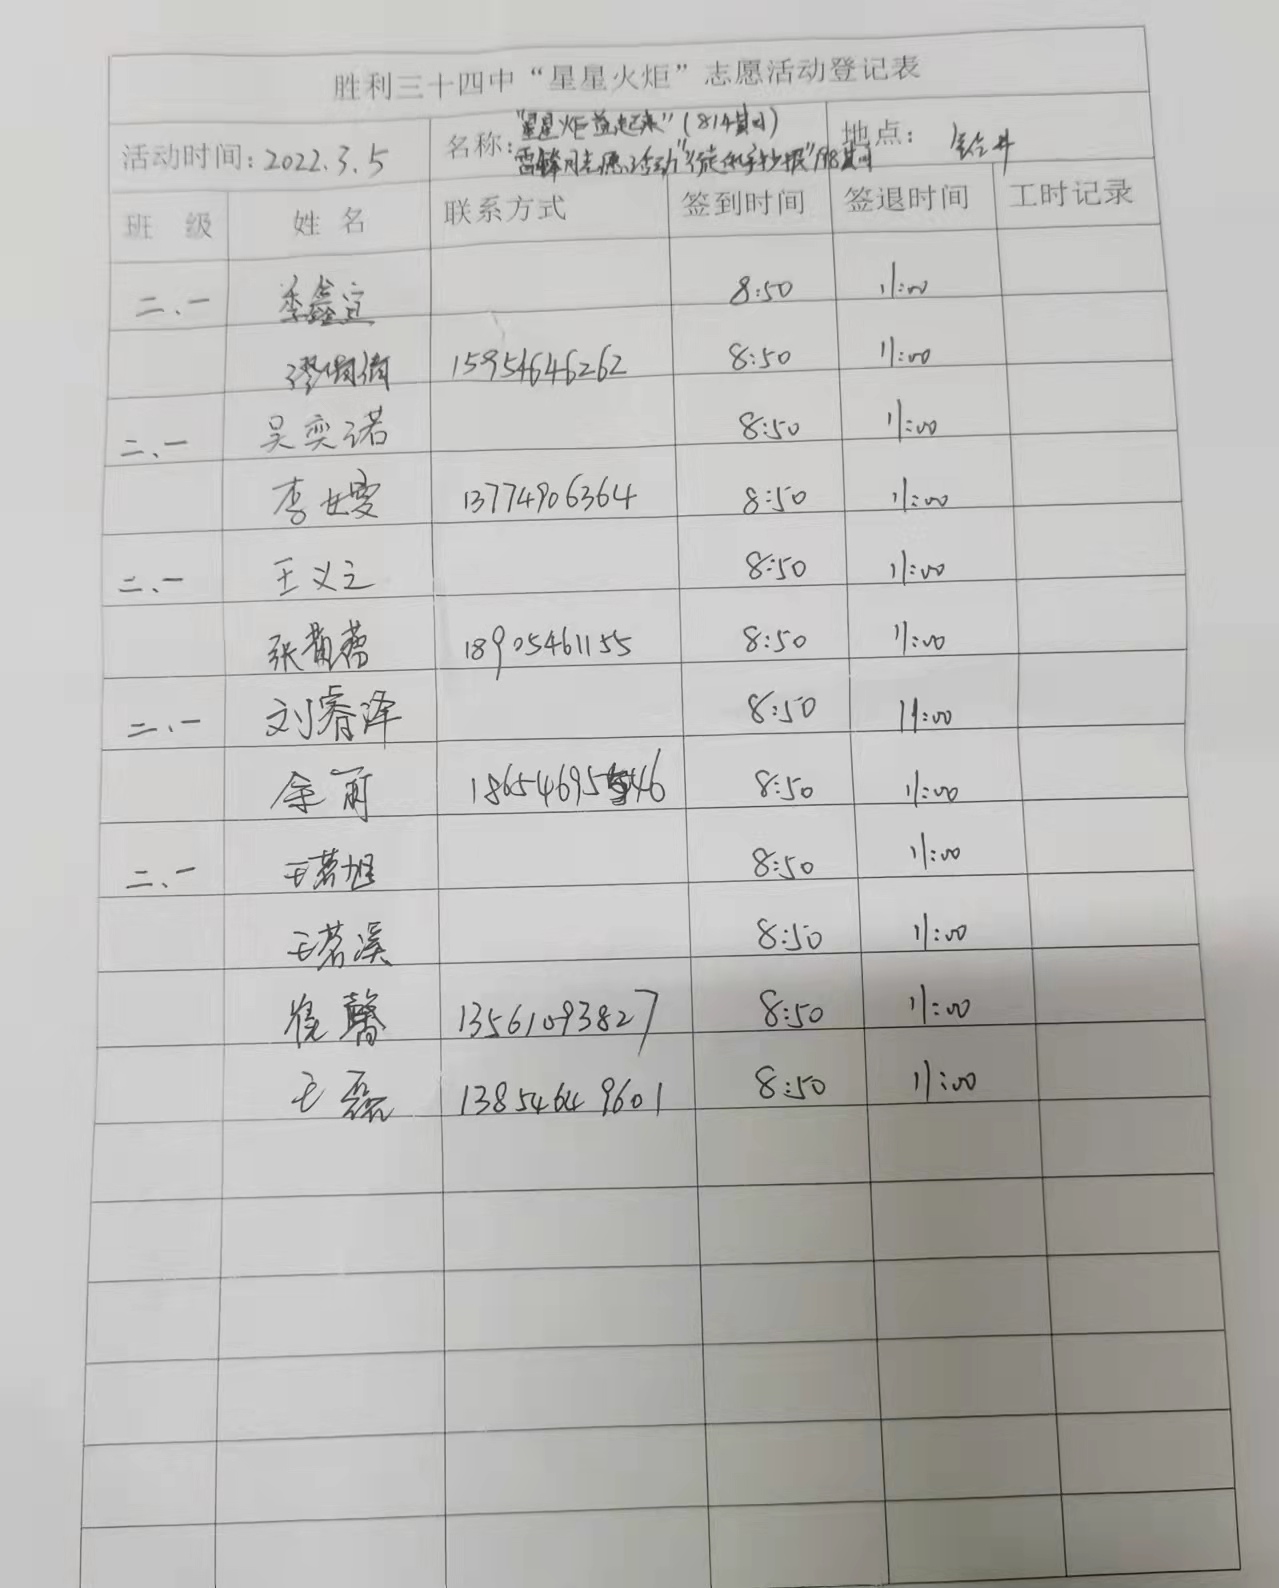 胜利三十四中“星星火炬”志愿活动登记表
活动时间: 2022.3.5 名称: “星星火炬益起来”(814期) 地点:
雷锋月志愿活动 手抄报”198期
班 级 姓 名 联系方式 签到时间 签退时间 工时记录
二、一 季鑫宜 8:50 11:00
15954646262 8:50 11:00
二、一 吴奕诺 8:50 11:00
李 13774906364 8:50 11:00
二、一 王义之 8:50 11:00
张 18905461155 8:50 11:00
二、一 刘睿泽 8:50 11:00
余丽 186546955546 8:50 11:00
二、一 王茗旭 8:50 11:00
王茗溪 8:50 11:00
馨 13561093827 8:50 11:00
王磊 13854649601 8:50 11:00